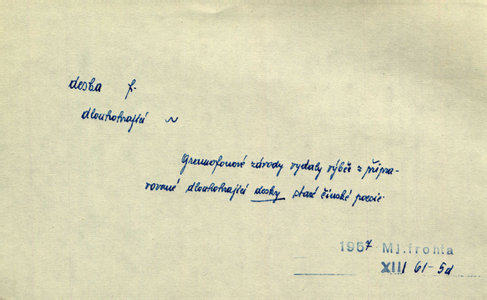 deska f.
dlouhohrající ~
Gramofonové závody vydaly výběr z připra-
vované dlouhohrající desky staré čínské poesie.
1957 Ml.fronta
XIII 61-5d